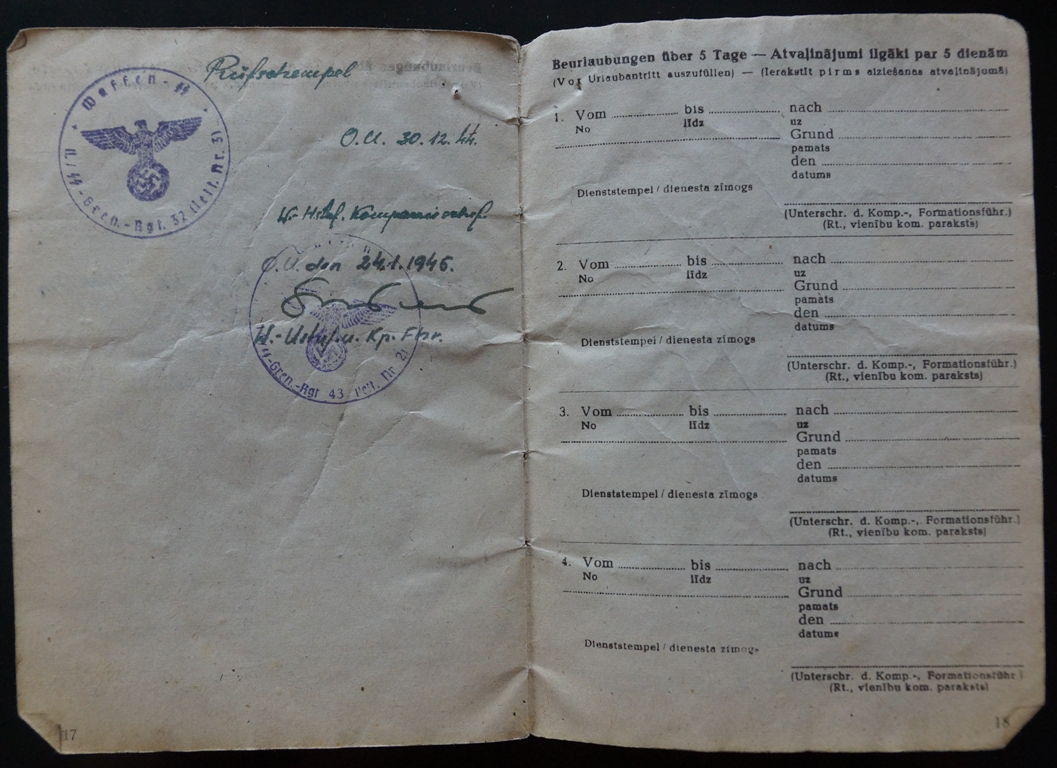 Prüfstempel
Waffen-SS
II./SS-Gren.-Rgt. 32 (lett. Nr. 5)
O.U. 30.12.44.
W.-Hstuf.
O.U. den 24.1.1945.
W.-Ustuf. u. Kp. Fhr.
SS-Gren.-Rgt. 43 (lett. Nr. 2)
17
Beurlaubungen über 5 Tage — Atvaļinājumi ilgāki par 5 dienām
(Vor Urlaubantritt auszufüllen) — (Ierakstīt pirms aiziešanas atvaļinājumā)
1. Vom bis nach
No līdz uz
Grund
pamats
den
datums
Dienststempel / dienesta zīmogs
(Unterschr. d. Komp.-, Formationsführ.)
(Rt., vienību kom. paraksts)
2. Vom bis nach
No līdz uz
Grund
pamats
den
datums
Dienststempel / dienesta zīmogs
(Unterschr. d. Komp.-, Formationsführ.)
(Rt., vienību kom. paraksts)
3. Vom bis nach
No līdz uz
Grund
pamats
den
datums
Dienststempel / dienesta zīmogs
(Unterschr. d. Komp.-, Formationsführ.)
(Rt., vienību kom. paraksts)
4. Vom bis nach
No līdz uz
Grund
pamats
den
datums
Dienststempel / dienesta zīmogs
(Unterschr. d. Komp.-, Formationsführ.)
(Rt., vienību kom. paraksts)
18